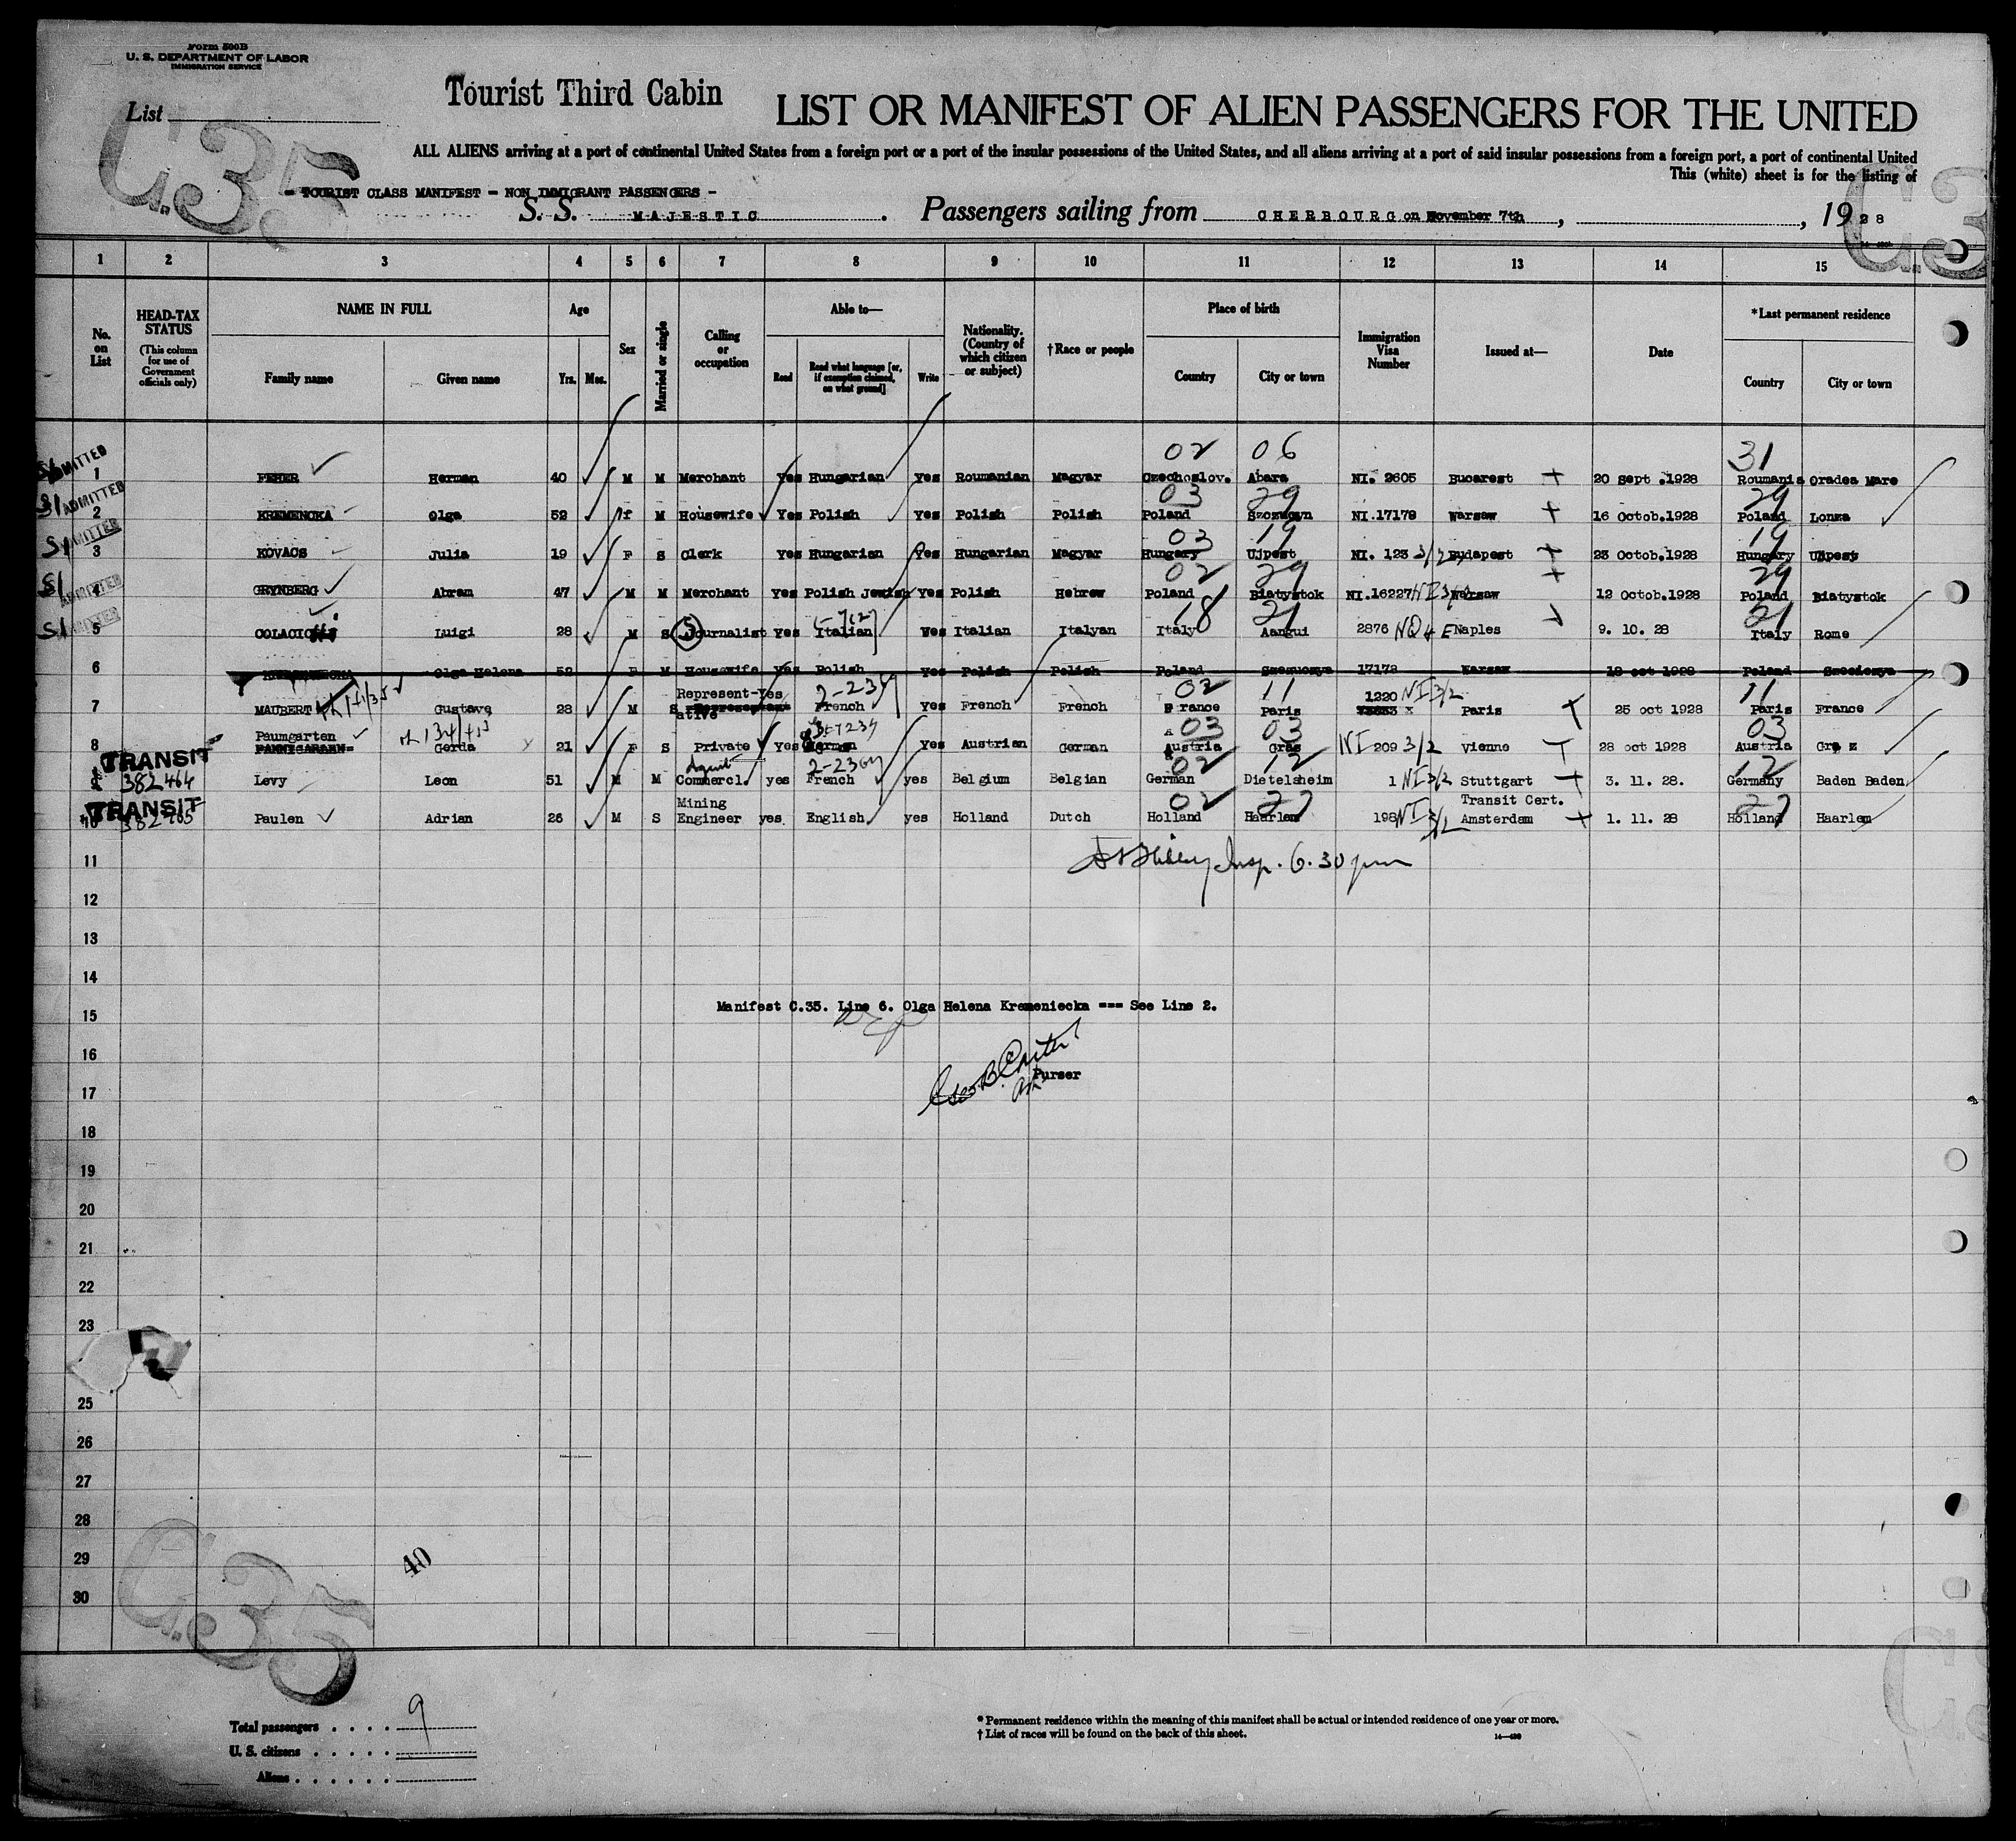 Form 500B
U. S. DEPARTMENT OF LABOR
IMMIGRATION SERVICE
List
Tourist Third Cabin
LIST OR MANIFEST OF ALIEN PASSENGERS FOR THE UNITED
ALL ALIENS arriving at a port of continental United States from a foreign port or a port of the insular possessions of the United States, and all aliens arriving at a port of said insular possessions from a foreign port, a port of continental United
This (white) sheet is for the listing of
C.35
- TOURIST CLASS MANIFEST - NON IMMIGRANT PASSENGERS -
S. S. MAJESTIC. Passengers sailing from CHERBOURG on November 7th, , 1928
1 2 3 4 5 6 7 8 9 10 11 12 13 14 15
No. on List
HEAD-TAX STATUS (This column for use of Government officials only)
NAME IN FULL
Family name Given name
Age
Yrs. Mos.
Sex
Married or single
Calling or occupation
Able to—
Read Read what language [or, if exemption claimed, on what ground] Write
Nationality. (Country of which citizen or subject)
†Race or people
Place of birth
Country City or town
Immigration Visa Number
Issued at—
Date
*Last permanent residence
Country City or town
02 06 31
ADMITTED 1 FEHER Herman 40 M M Merchant Yes Hungarian Yes Roumanian Magyar Czechoslov. Abara NI. 2605 Bucarest 20 Sept .1928 Roumania Oradea Mare
03 29 29
S1 ADMITTED 2 KREMENCKA Olga 52 f M Housewife Yes Polish Yes Polish Polish Poland Szozucyn NI.17179 Warsaw 16 Octob.1928 Poland Lomza
03 19 19
S1 ADMITTED 3 KOVACS Julia 19 F S Clerk Yes Hungarian Yes Hungarian Magyar Hungary Ujpest NI. 123 3/2 Budapest 23 Octob.1928 Hungary Ujpest
02 29 29
S1 ADMITTED 4 GRYNBERG Abram 47 M M Merchant Yes Polish Jewish Yes Polish Hebrew Poland Biatystok NI.16227 NI 3/2 Warsaw 12 Octob.1928 Poland Biatystok
18 21 21
S1 ADMITTED 5 COLACIC Luigi 28 M S Journalist Yes Italian Yes Italian Italyan Italy 2876 NQ 4 E Naples 9. 10. 28 Italy Rome
6 Olga Helena 52 F M Housewife Yes Polish Yes Polish Polish Poland 17178 Warsaw 18 oct 1928 Poland
Represent- Yes 2-234 02 11 1220 NI 3/2 11
7 MAUBERT Gustave 28 M S ative French Yes French French France Paris Paris 25 oct 1928 Paris France
Paumgarten 03 03 03
8 Gerda 21 F S Private Yes German Yes Austrian German Austria Gras NI 209 3/2 Vienne 28 oct 1928 Austria Gra z
TRANSIT
Agent 02 12 12
9 382464 Levy Leon 51 M M Commercl. yes French yes Belgium Belgian German Dietelsheim 1 NI 3/2 Stuttgart 3. 11. 28. Germany Baden Baden
TRANSIT Mining 02 27 Transit Cert. 27
10 382465 Paulen Adrian 26 M S Engineer yes English yes Holland Dutch Holland Haarlem 198 NI 3/2 Amsterdam 1. 11. 28 Holland Haarlem
11
Insp. 6.30 pm
12
13
14
Manifest C.35. Line 6. Olga Helena Kremeniecka === See Line 2.
15
16
Geo B. Carter
Purser
17
18
19
20
21
22
23
25
26
27
28
29
40
30
C.35
Total passengers . . . . 9
U. S. citizens . . . . .
Aliens . . . . . .
* Permanent residence within the meaning of this manifest shall be actual or intended residence of one year or more.
† List of races will be found on the back of this sheet.